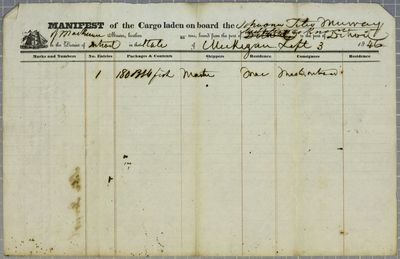 MANIFEST of the Cargo laden on board the Schooner Tity Murray
of Mackinac Master, burthen as now, bound from the port of to the port of Detroit
in the District of Detroit in the State of Michigan Sept 3 1846
Marks and Numbers No. Entries Packages & Contents Shippers Residence Consignees Residence
1 180 Bbls fish Master Mac